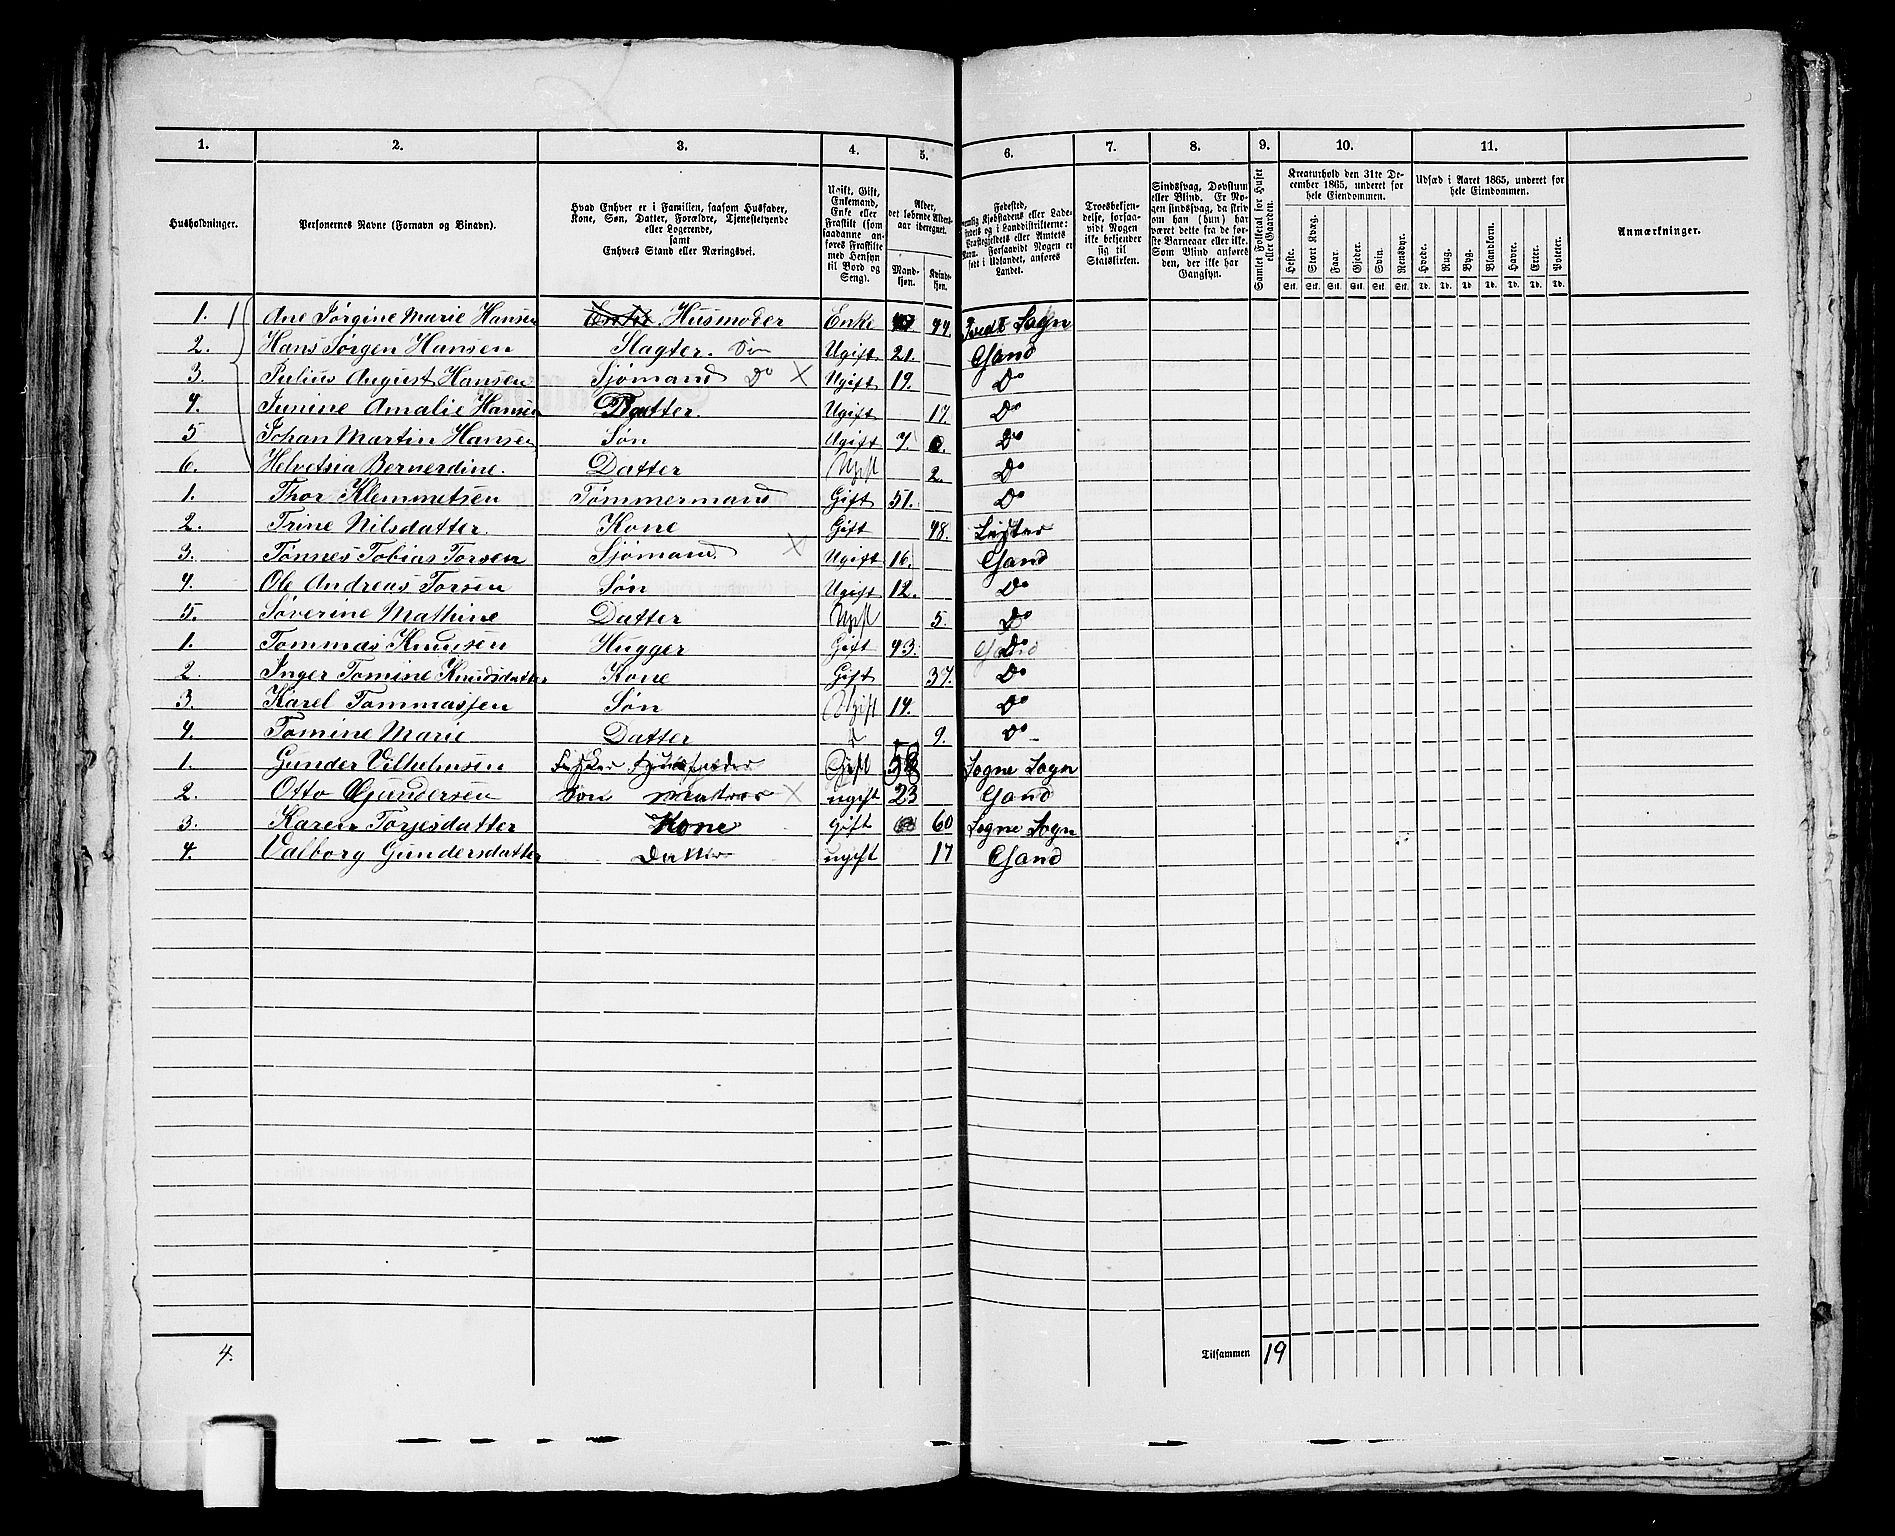 1. 2. 3. 4. 5. 6. 7. 8. 9. 10. 11.
Husholdninger. Personernes Navne (Fornavn og Binavn). Hvad Enhver er i Familien, saasom Husfader, Kone, Søn, Datter, Forældre, Tjenestetyende eller Logerende, samt Enhvers Stand eller Næringsvei. Ugift, Gift, Enkemand, Enke eller Fraskilt (som saadanne anføres Fraskilte med Hensyn til Bord og Seng). Alder, det løbende Aldersaar iberegnet. Mandkjøn. Kvindekjøn. Fødested, Kjøbstadens eller Ladestedets og i Landdistrikterne: Præstegjeldets eller Amtets Navn. Forsaavidt Nogen er født i Udlandet, anføres Landet. Troesbekjendelse, forsaavidt Nogen ikke bekjender sig til Statskirken. Sindssvag, Døvstum eller Blind. Er Nogen sindssvag, da skrives om han (hun) har været dette fra de første Barneaar eller ikke. Som Blind anføres den, der ikke har Gangsyn. Samlet Folketal for Huset eller Gaarden. Kreaturhold den 31te December 1865, underet for hele Eiendommen. Udsæd i Aaret 1865, underet for hele Eiendommen. Anmærkninger.
Heste. Stort Kvæg. Faar. Gjeder. Svin. Rensdyr. Hvede. Rug. Byg. Blandkorn. Havre. Erter. Poteter.
Stk. Stk. Stk. Stk. Stk. Stk. Td. Td. Td. Td. Td. Td. Td.
1. Ane Jørgine Marie Hansen Enke Husmoder Enke 44. Tvedt Sogn
2. Hans Jørgen Hansen Slagter. Søn Ugift 21. Gand
3. Julius August Hansen Sjømand Do X Ugift 19. Do
4. Junine Amalie Hansen Datter. Ugift 17. Do
5 Johan Martin Hansen Søn Ugift 7. Do
6. Helvetsia Bernerdine. Datter Ugift 2. Do
1. Thor Klemmetsen Tømmermand Gift 51. Do
2. Trine Nilsdatter Kone Gift 48. Lister
3. Tønnes Tobias Torsen Sjømand X Ugift 16. Gand
4. Ole Andreas Torsen Søn Ugift 12. Do
5. Søverine Mathine Datter Ugift 5. Do
1. Tommas Knudsen Hugger Gift 43. Do
2. Inger Tomine Knudsdatter Kone Gift 37. Do
3. Karel Tommassen Søn Ugift 14. Do
4. Tomine Marie Datter 9. Do
1. Gunder Vilhelmsen Fisker Husfader Gift 58 Sogne Sogn
2. Otto Gundersen Søn Matros X ugift 23 Gand
3. Karen Torjesdatter Kone Gift 60 Sogne Sogn
4. Valborg Gundersdatter Datter ugift 17 Gand
4. Tilsammen 19